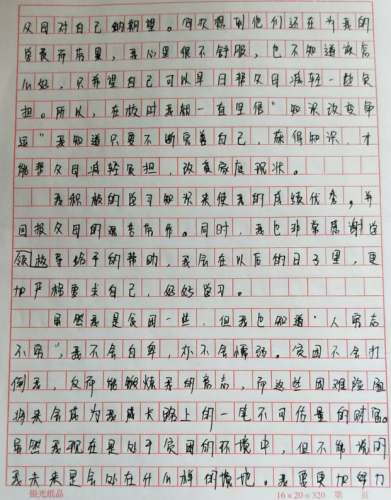 父母对自己的期望。每次想到他们还在为我的
学费而着累，我心里很不舒服，也不知道该怎
么好，只希望自己可以早日帮父母减轻一些负
担。所以，在校时我都一直坚信“知识改变命
运”我知道只要不断完善自己，获得知识，才
能帮父母减轻负担，改良家庭现状。
我积极的学习知识来使我的成绩优秀，并
回报父母的艰苦劳作。同时，我也非常感谢学
领导给予的帮助，我会在以后的日子里，更
加严格要求自己，好好学习。
虽然我是贫困一些，但我也知道“人穷志
不穷”，我不会自卑，亦不会懦弱。贫困不会打
倒我，反而能锻炼我的意志，而这些困难险阻
将来会成为我成长路上的一笔不可估量的财富。
虽然我现在是处于贫困的环境中，但不能说明
我未来是会处在什么样的境地。我需更加努力
银光纸品
16×20=320 第 页